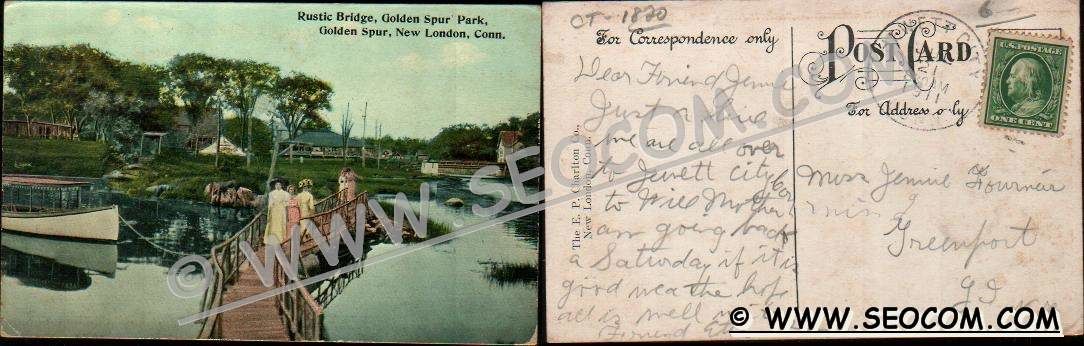 Rustic Bridge, Golden Spur Park,
Golden Spur, New London, Conn.
© WWW.SEOCOM.COM
CT-1820
6-
For Correspondence only
POST CARD
For Address only
JEWETT CITY
1911
U.S. POSTAGE
ONE CENT
The E. P. Charlton Co.,
New London, Conn.
Dear Friend Jennie
Just a line
we are all over
to Jewett City for
to Wiles Mother
am going back
a Saturday if it is
good weather hope
all is well
Friend
Miss Jennie Fournier
Greenport
© WWW.SEOCOM.COM